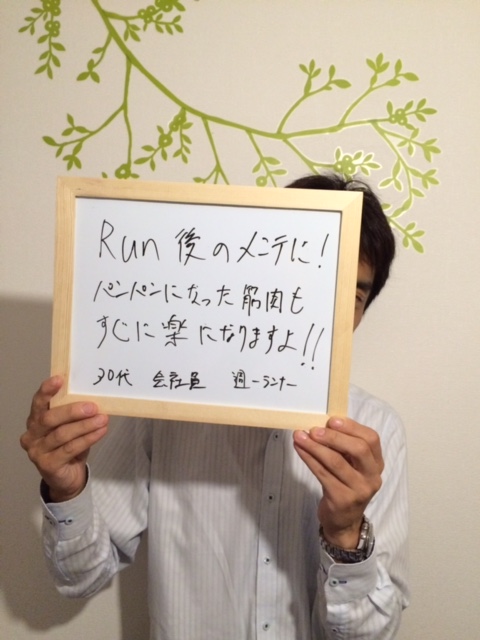 Run 後のメンテに!
パンパンになった筋肉も
すぐに楽になりますよ!!
30代 会社員 週一ランナー